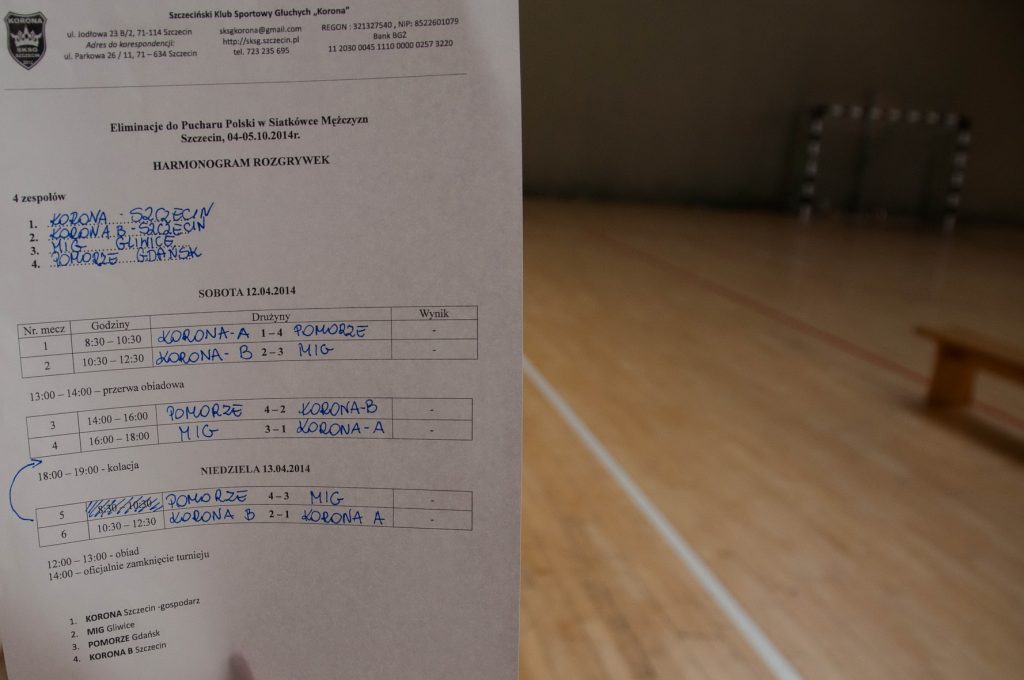 KORONA
SKSG
SZCZECIN
Szczeciński Klub Sportowy Głuchych „Korona”
ul. Jodłowa 23 B/2, 71-114 Szczecin
Adres do korespondencji:
ul. Parkowa 26 / 11, 71 – 634 Szczecin
sksgkorona@gmail.com
http://sksg.szczecin.pl
tel. 723 235 695
REGON : 321327540 , NIP: 8522601079
Bank BGŻ
11 2030 0045 1110 0000 0257 3220
Eliminacje do Pucharu Polski w Siatkówce Mężczyzn
Szczecin, 04-05.10.2014r.
HARMONOGRAM ROZGRYWEK
4 zespołów
1. KORONA - SZCZECIN
2. KORONA B - SZCZECIN
3. MIG GLIWICE
4. POMORZE GDAŃSK
SOBOTA 12.04.2014
Nr. mecz Godziny Drużyny Wynik
1 8:30 – 10:30 KORONA-A 1 – 4 POMORZE -
2 10:30 – 12:30 KORONA- B 2 – 3 MIG -
13:00 – 14:00 – przerwa obiadowa
3 14:00 – 16:00 POMORZE 4 – 2 KORONA-B -
4 16:00 – 18:00 MIG 3 – 1 KORONA-A -
18:00 – 19:00 - kolacja
NIEDZIELA 13.04.2014
5 8:30 – 10:30 POMORZE 4 – 3 MIG -
6 10:30 – 12:30 KORONA B 2 – 1 KORONA A -
12:00 – 13:00 - obiad
14:00 – oficjalnie zamknięcie turnieju
1. KORONA Szczecin -gospodarz
2. MIG Gliwice
3. POMORZE Gdańsk
4. KORONA B Szczecin